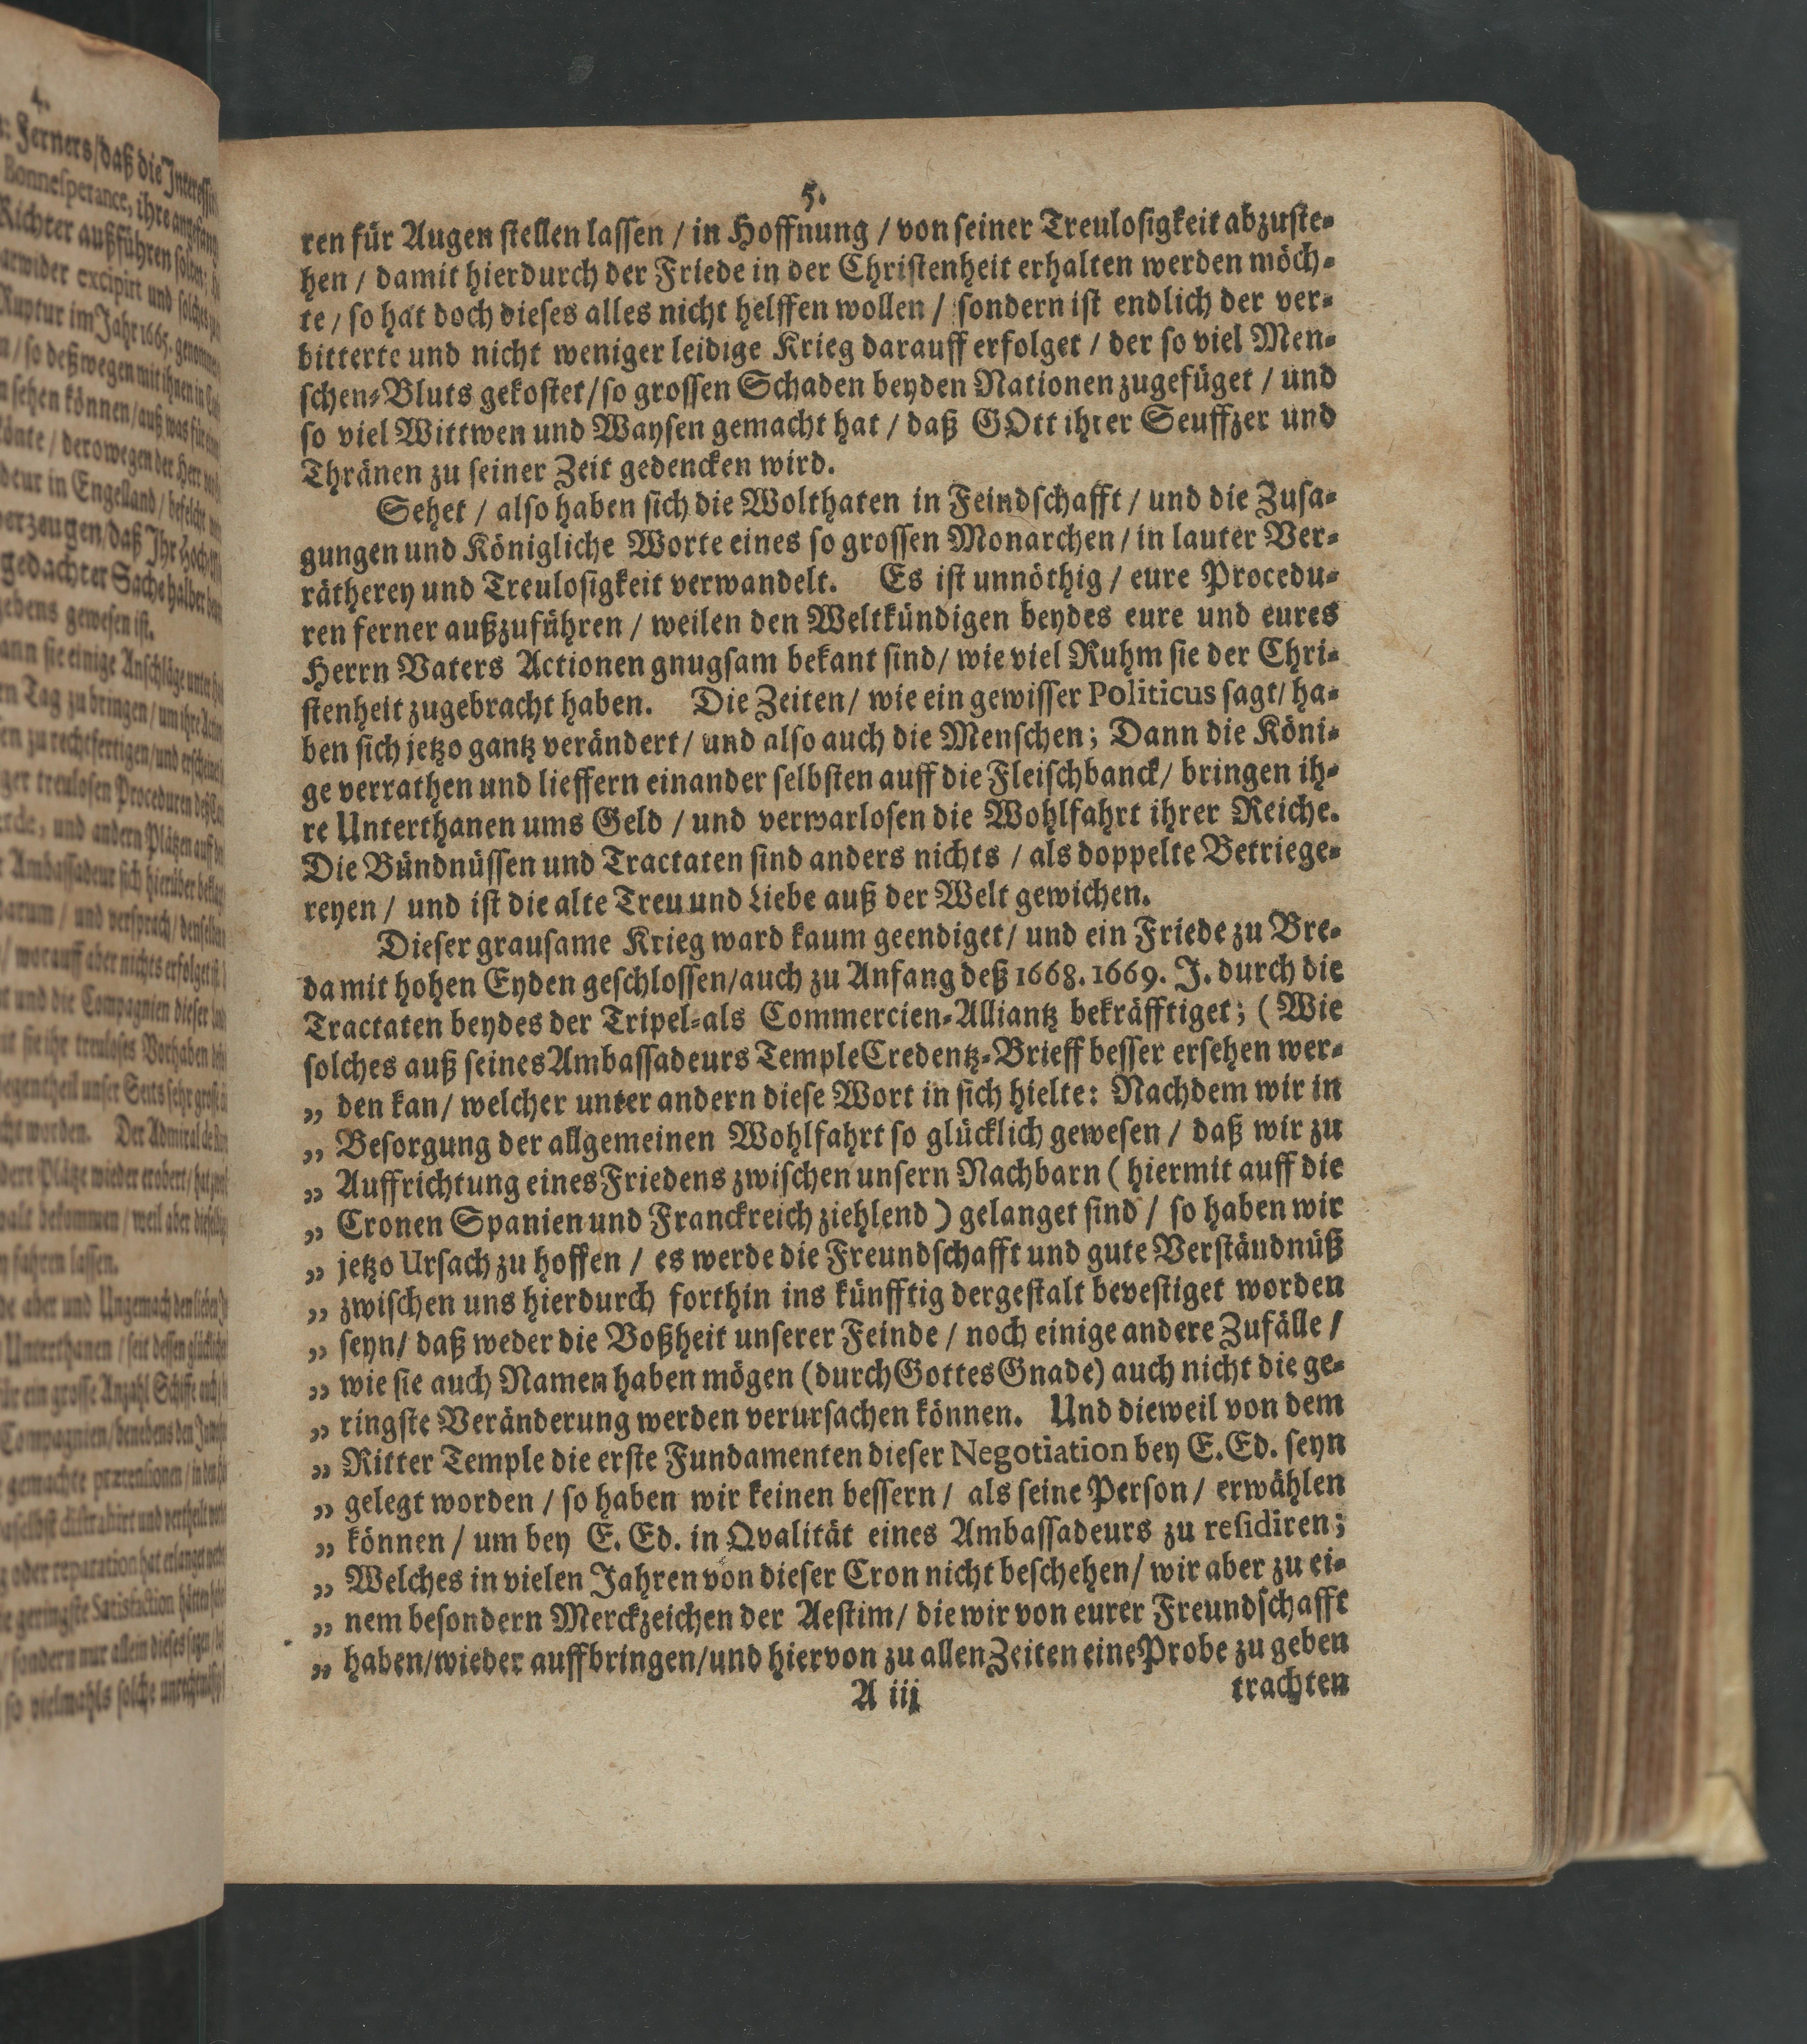 4.
Ferners / daß die Interessi
Bonnesperance, ihre angefang
Richter außführen solten
arwider excipirt und solches
Ruptur im Jahr 1665. genomme
/ so deßwegen mit ihnen in
sehen können / auß was für
könte / derowegen der Herr
deur in Engelland / befelcht
verzeugen / daß Ihr Hoch
gedachter Sache halber
gebens gewesen ist.
ann sie einige Anschläge unter
Tag zu bringen / um ihre
zu rechtfertigen / und
treulosen Proceduren deß
und andern Plätzen auf
Ambassadeur sich hierüber
darum / und versprach / denselben
worauff aber nichts erfolget ist
und die Compagnien dieser
sie ihr treuloses Vorhaben
Gegentheil unser Seits sehr groß
worden. Der Admiral de
Plätze wieder erobert / hat
bekommen / weil aber dieselbe
fahren lassen.
aber und Ungemach den lieben
Unterthanen / seit dessen glückliche
ein grosse Anzahl Schiffe
Compagnien / benebens den
gemachte prætensionen / in den
daselbst distrahirt und vertheilt
oder reparation hat erlanget
geringste Satisfaction hätten
/ sondern nur allein dieses sagen
so vielmahls solche
5.
ren für Augen stellen lassen / in Hoffnung / von seiner Treulosigkeit abzuste-
hen / damit hierdurch der Friede in der Christenheit erhalten werden möch-
te / so hat doch dieses alles nicht helffen wollen / sondern ist endlich der ver-
bitterte und nicht weniger leidige Krieg darauff erfolget / der so viel Men-
schen-Bluts gekostet / so grossen Schaden beyden Nationen zugefüget / und
so viel Wittwen und Waysen gemacht hat / daß GOtt ihrer Seuffzer und
Thränen zu seiner Zeit gedencken wird.
Sehet / also haben sich die Wolthaten in Feindschafft / und die Zusa-
gungen und Königliche Worte eines so grossen Monarchen / in lauter Ver-
rätherey und Treulosigkeit verwandelt. Es ist unnöthig / eure Procedu-
ren ferner außzuführen / weilen den Weltkündigen beydes eure und eures
Herrn Vaters Actionen gnugsam bekant sind / wie viel Ruhm sie der Chri-
stenheit zugebracht haben. Die Zeiten / wie ein gewisser Politicus sagt / ha-
ben sich jetzo gantz verändert / und also auch die Menschen; Dann die Köni-
ge verrathen und lieffern einander selbsten auff die Fleischbanck / bringen ih-
re Unterthanen ums Geld / und verwarlosen die Wohlfahrt ihrer Reiche.
Die Bündnüssen und Tractaten sind anders nichts / als doppelte Betriege-
reyen / und ist die alte Treu und Liebe auß der Welt gewichen.
Dieser grausame Krieg ward kaum geendiget / und ein Friede zu Bre-
da mit hohen Eyden geschlossen / auch zu Anfang deß 1668. 1669. J. durch die
Tractaten beydes der Tripel-als Commercien-Alliantz bekräfftiget; (Wie
solches auß seines Ambassadeurs Temple Credentz-Brieff besser ersehen wer-
„ den kan / welcher unter andern diese Wort in sich hielte: Nachdem wir in
„ Besorgung der allgemeinen Wohlfahrt so glücklich gewesen / daß wir zu
„ Auffrichtung eines Friedens zwischen unsern Nachbarn (hiermit auff die
„ Cronen Spanien und Franckreich ziehlend) gelanget sind / so haben wir
„ jetzo Ursach zu hoffen / es werde die Freundschafft und gute Verständnüß
„ zwischen uns hierdurch forthin ins künfftig dergestalt bevestiget worden
„ seyn / daß weder die Boßheit unserer Feinde / noch einige andere Zufälle /
„ wie sie auch Namen haben mögen (durch Gottes Gnade) auch nicht die ge-
„ ringste Veränderung werden verursachen können. Und dieweil von dem
„ Ritter Temple die erste Fundamenten dieser Negotiation bey E. Ed. seyn
„ gelegt worden / so haben wir keinen bessern / als seine Person / erwählen
„ können / um bey E. Ed. in Qvalität eines Ambassadeurs zu residiren;
„ Welches in vielen Jahren von dieser Cron nicht beschehen / wir aber zu ei-
„ nem besondern Merckzeichen der Aestim / die wir von eurer Freundschafft
„ haben / wieder auffbringen / und hiervon zu allen Zeiten eine Probe zu geben
A iij trachten